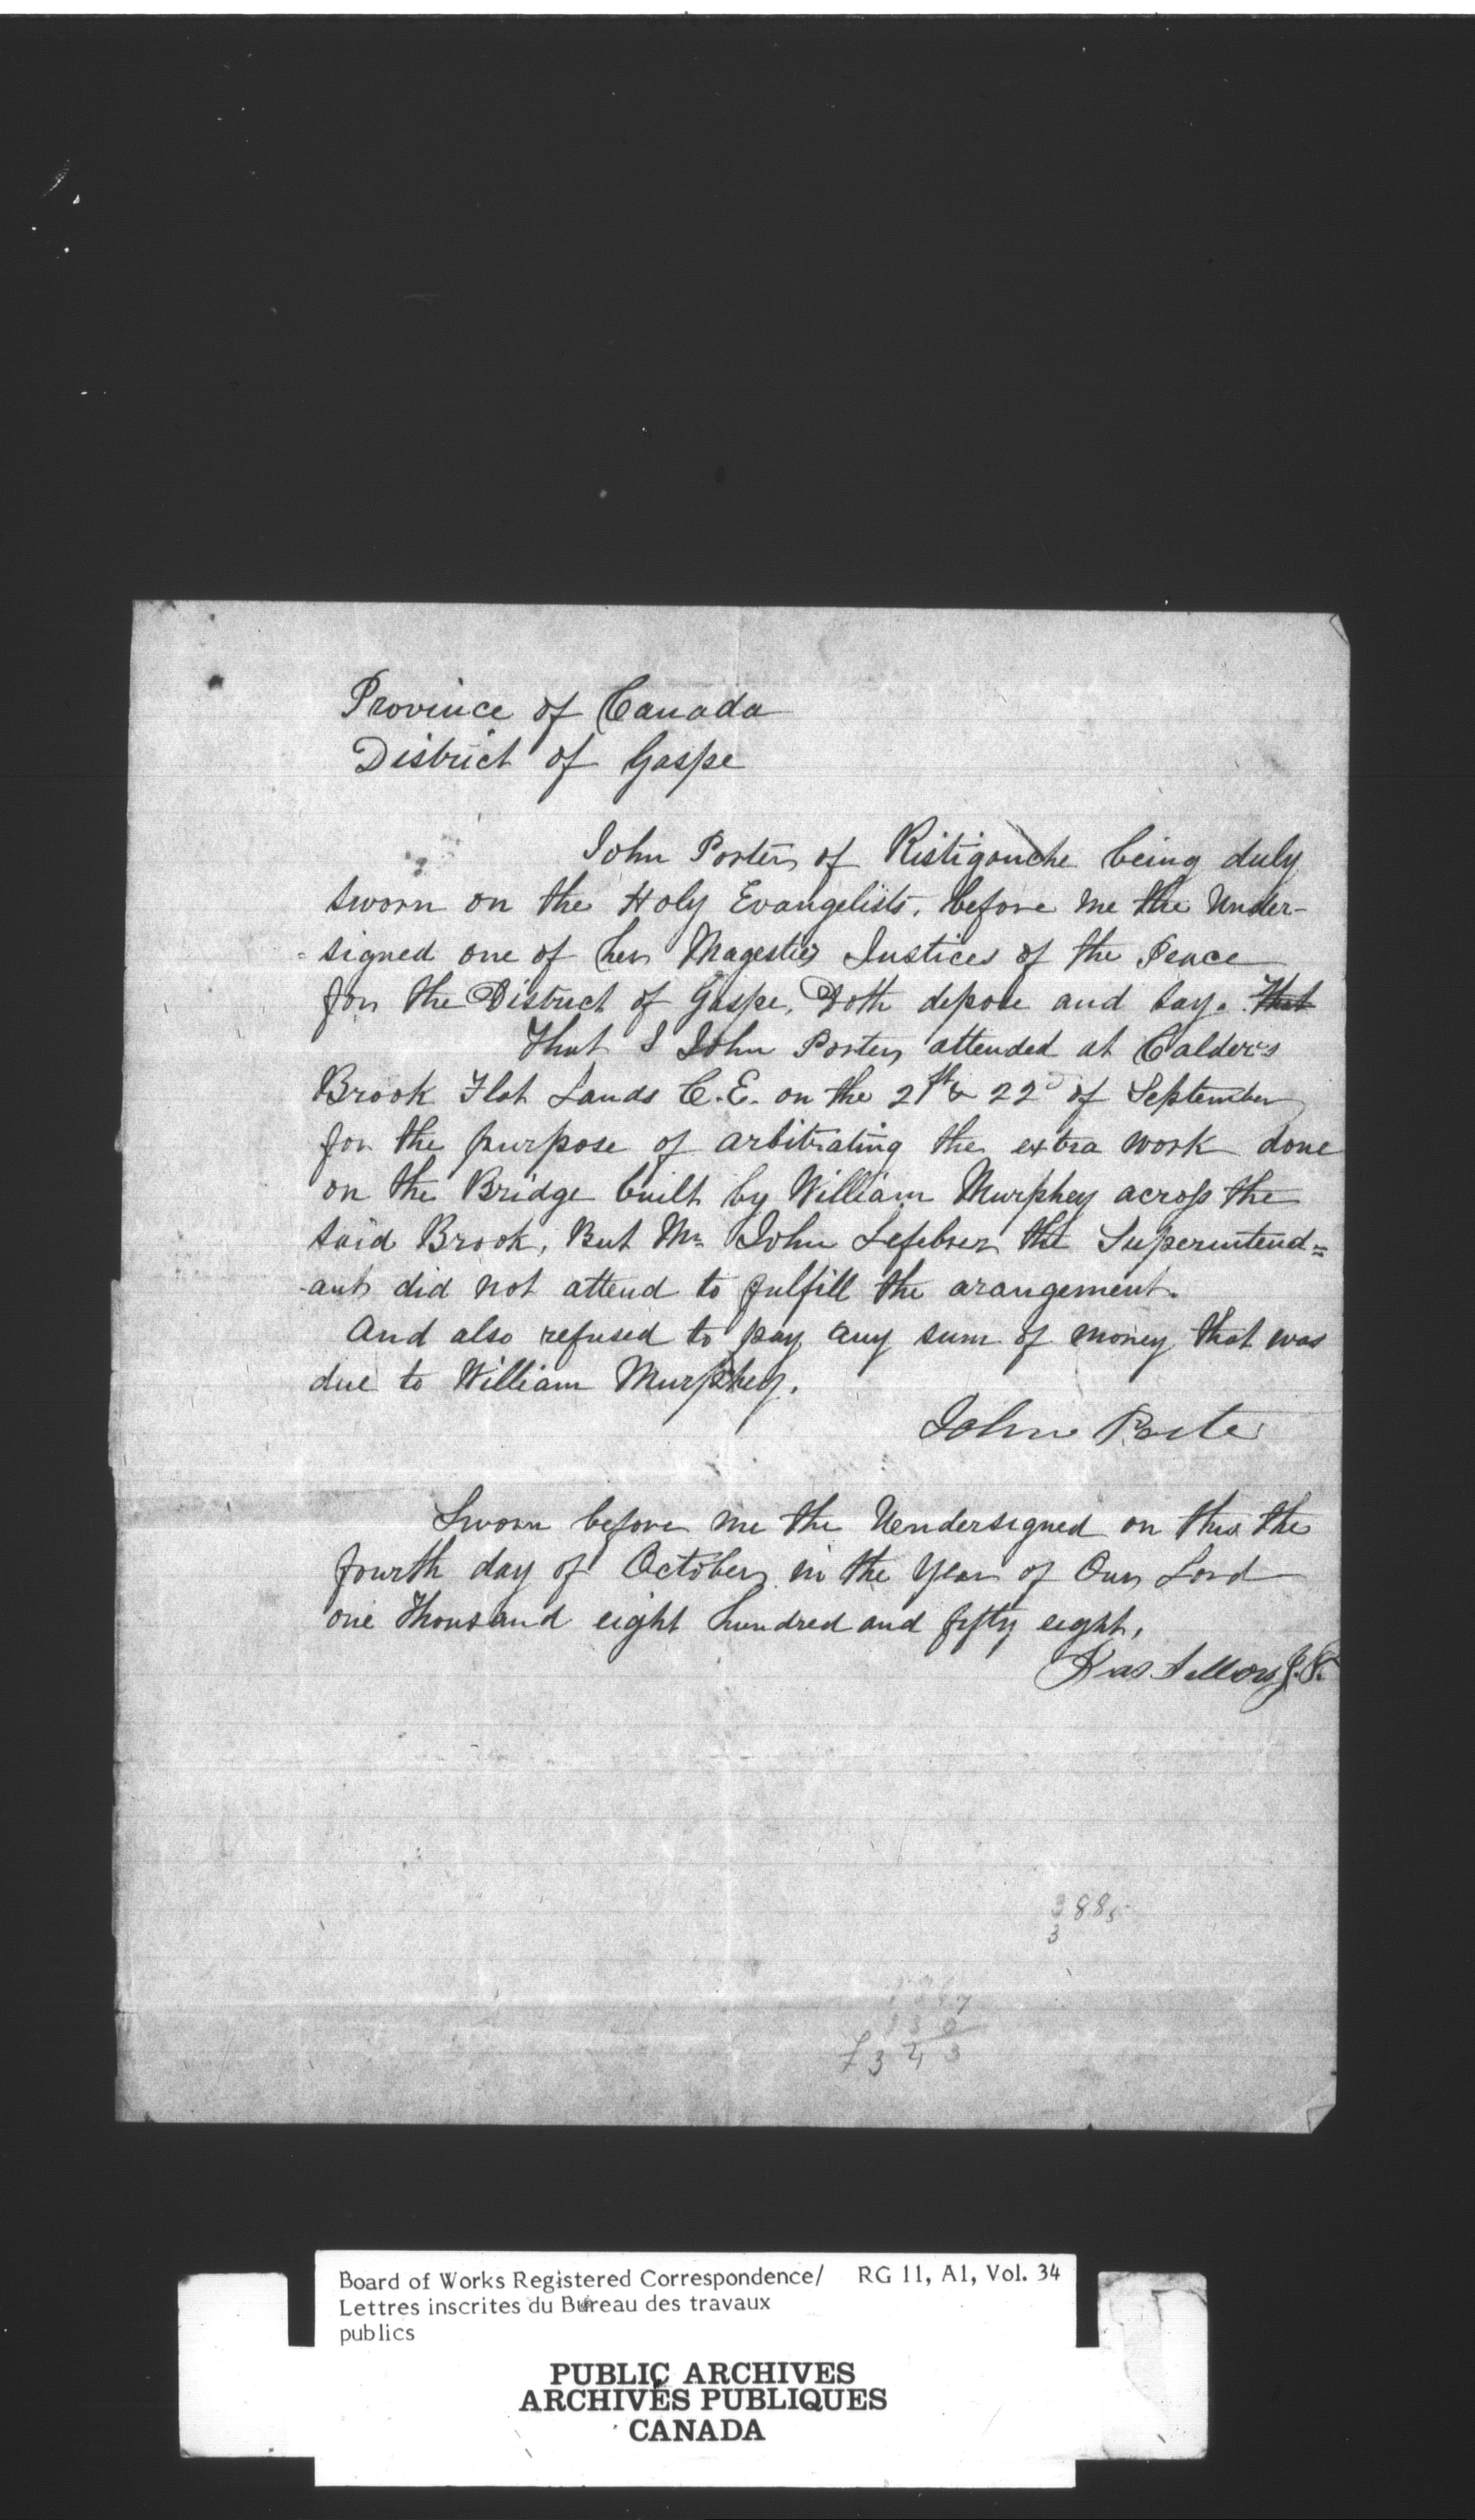 Province of Canada
District of Gaspe
John Porter of Ristigouche being duly
sworn on the Holy Evangelists, before me the Under-
=signed one of her Magesties Justices of the Peace
for the District of Gaspe, Doth depose and say. That
That I John Porter attended at Calder's
Brook Flat Lands C.E. on the 21st & 22d of September
for the purpose of arbitrating the extra work done
on the Bridge built by William Murphey across the
said Brook, But Mr John Lefebver the Superintend=
-ant did not attend to fulfill the arangement.
And also refused to pay any sum of money that was
due to William Murphey.
John Porter
Sworn before me the Undersigned on this the
fourth day of October in the Year of Our Lord
one thousand eight hundred and fifty eight,
J.P.
3885
3
130
£343
Board of Works Registered Correspondence/ RG 11, A1, Vol. 34
Lettres inscrites du Bureau des travaux
publics
PUBLIC ARCHIVES
ARCHIVES PUBLIQUES
CANADA